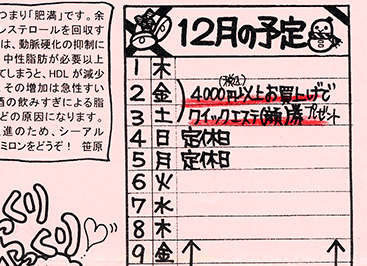 つまり「肥満」です。余
レステロールを回収す
は、動脈硬化の抑制に
中性脂肪が必要以上
てしまうと、HDL が減少
。その増加は急性すい
酒の飲みすぎによる脂
どの原因になります。
進のため、シーアル
ミロンをどうぞ! 笹原
くり
くり
12月の予定
1 木
2 金 4000円(税込)以上お買上げで
3 土 クイックエステ(顔)券プレゼント
4 日 定休日
5 月 定休日
6 火
7 水
8 木
9 金